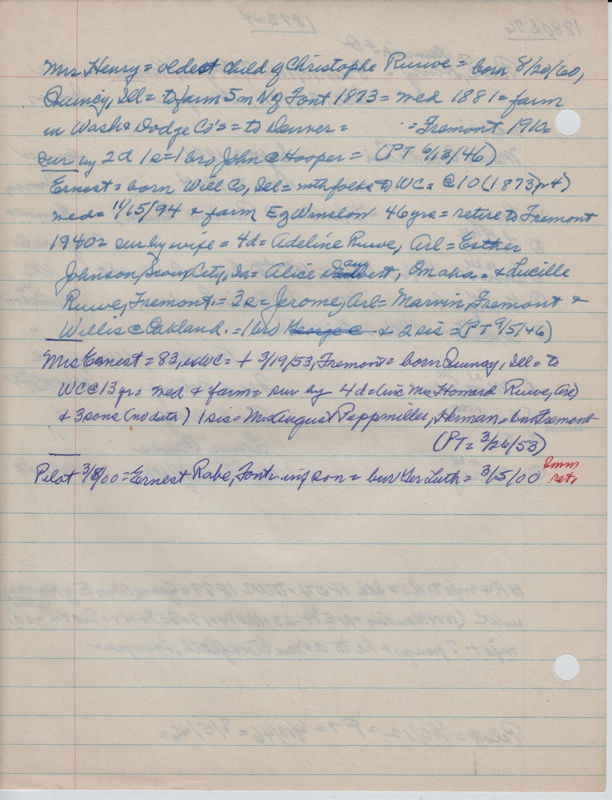 Mrs Henry = oldest child of Christophe Ruwe = born 8/20/60,
Quincy, Ill = to farm 5m N of Font 1873 = med 1881 = farm
in Wash & Dodge Co's = to Denver = = Fremont 1910
sur by 2d 1s = 1 bro John @ Hooper = (PT 6/13/46)
Ernest = born Will Co, Ill = with folks to WC = @ 10 (1873)
med = 11/15/94 & farm E of Winslow 46 yrs = retire to Fremont
1940 = sur by wife = 4d = Adeline Ruwe, Arl = Esther
Johnson, Sioux City, Ia = Alice Daubert, Omaha = & Lucille
Ruwe, Fremont = 3s = Jerome, Arl = Marvin, Fremont &
Willis @ Oakland = 1 bro George @ & 2 sis = (PT 9/5/46)
Mrs Ernest = 83, exWC = + 3/19/53, Fremont = born Quincy, Ill = to
WC @ 13 yr = med & farm = sur by 4d = (inc Mrs Howard Ruwe, Arl)
& 3 sons (no data) 1 sis = Mrs August Poppmiller, Herman = bur Fremont
(PT = 3/26/53)
Pilot 3/8/00 = Ernest Rabe, Font = inf son = bur Ger Luth = 3/5/00